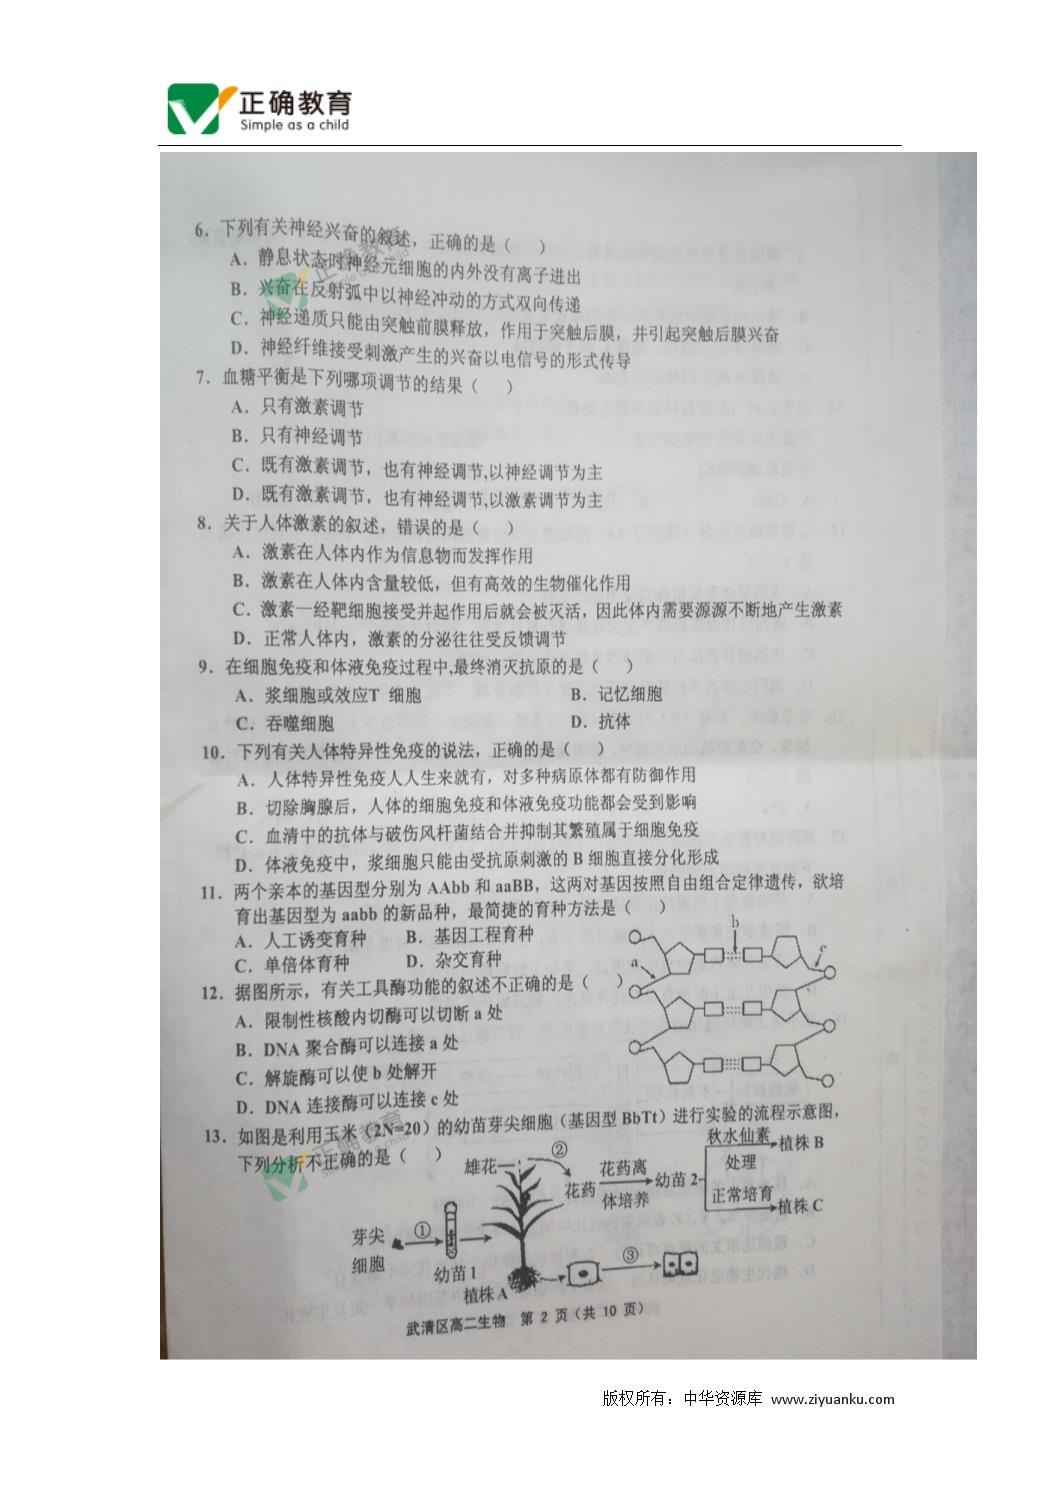 正确教育
Simple as a child
6．下列有关神经兴奋的叙述，正确的是（　　）
A．静息状态时神经元细胞的内外没有离子进出
B．兴奋在反射弧中以神经冲动的方式双向传递
C．神经递质只能由突触前膜释放，作用于突触后膜，并引起突触后膜兴奋
D．神经纤维接受刺激产生的兴奋以电信号的形式传导
7．血糖平衡是下列哪项调节的结果（　　）
A．只有激素调节
B．只有神经调节
C．既有激素调节，也有神经调节,以神经调节为主
D．既有激素调节，也有神经调节,以激素调节为主
8．关于人体激素的叙述，错误的是（　　）
A．激素在人体内作为信息物而发挥作用
B．激素在人体内含量较低，但有高效的生物催化作用
C．激素一经靶细胞接受并起作用后就会被灭活，因此体内需要源源不断地产生激素
D．正常人体内，激素的分泌往往受反馈调节
9．在细胞免疫和体液免疫过程中,最终消灭抗原的是（　　）
A．浆细胞或效应T 细胞　　B．记忆细胞
C．吞噬细胞　　D．抗体
10．下列有关人体特异性免疫的说法，正确的是（　　）
A．人体特异性免疫人人生来就有，对多种病原体都有防御作用
B．切除胸腺后，人体的细胞免疫和体液免疫功能都会受到影响
C．血清中的抗体与破伤风杆菌结合并抑制其繁殖属于细胞免疫
D．体液免疫中，浆细胞只能由受抗原刺激的 B 细胞直接分化形成
11．两个亲本的基因型分别为 AAbb 和 aaBB，这两对基因按照自由组合定律遗传，欲培
育出基因型为 aabb 的新品种，最简捷的育种方法是（　　）
A．人工诱变育种　　B．基因工程育种
C．单倍体育种　　D．杂交育种
12．据图所示，有关工具酶功能的叙述不正确的是（　　）
A．限制性核酸内切酶可以切断 a 处
B．DNA 聚合酶可以连接 a 处
C．解旋酶可以使 b 处解开
D．DNA 连接酶可以连接 c 处
a
b
c
13．如图是利用玉米（2N=20）的幼苗芽尖细胞（基因型 BbTt）进行实验的流程示意图，
下列分析不正确的是（　　）
雄花
②
花药
花药离
体培养
幼苗 2
秋水仙素
处理
植株 B
正常培育
植株 C
芽尖
细胞
①
幼苗 1
植株 A
③
武清区高二生物　第 2 页（共 10 页）
正确教育
Simple as a child
正确教育
版权所有：中华资源库 www.ziyuanku.com